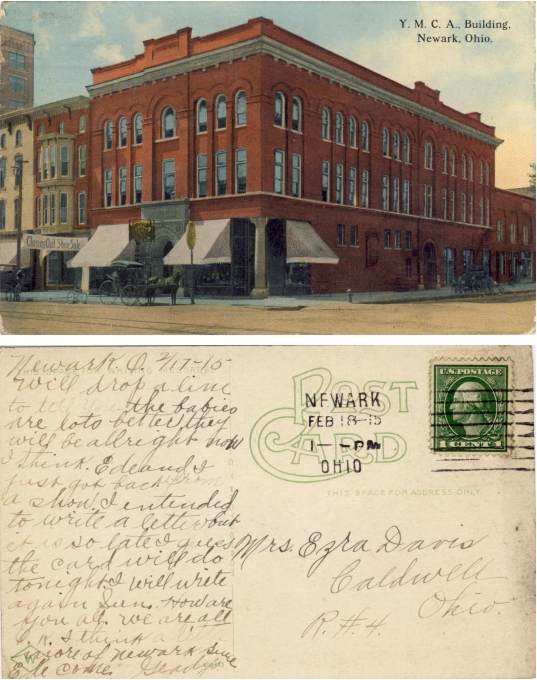 Y. M. C. A., Building,
Newark, Ohio.
Closing Out Shoe Sale
Newark, O. 2/17-15
Will drop a line
to tell you the babies
are lots better they
will be allright now
I think. Ed and I
just got back from
a show. I intended
to write a letter but
it is so late I guess
the card will do
tonight. I will write
again Sun. How are
you all. we are all
I think a
more of Newark since
come. Gladys
POST
CARD
NEWARK
FEB 18-15
1--PM
OHIO
U.S. POSTAGE
1 CENTS 1
THIS SPACE FOR ADDRESS ONLY
Mrs. Ezra Davis
Caldwell
Ohio.
R.#4.